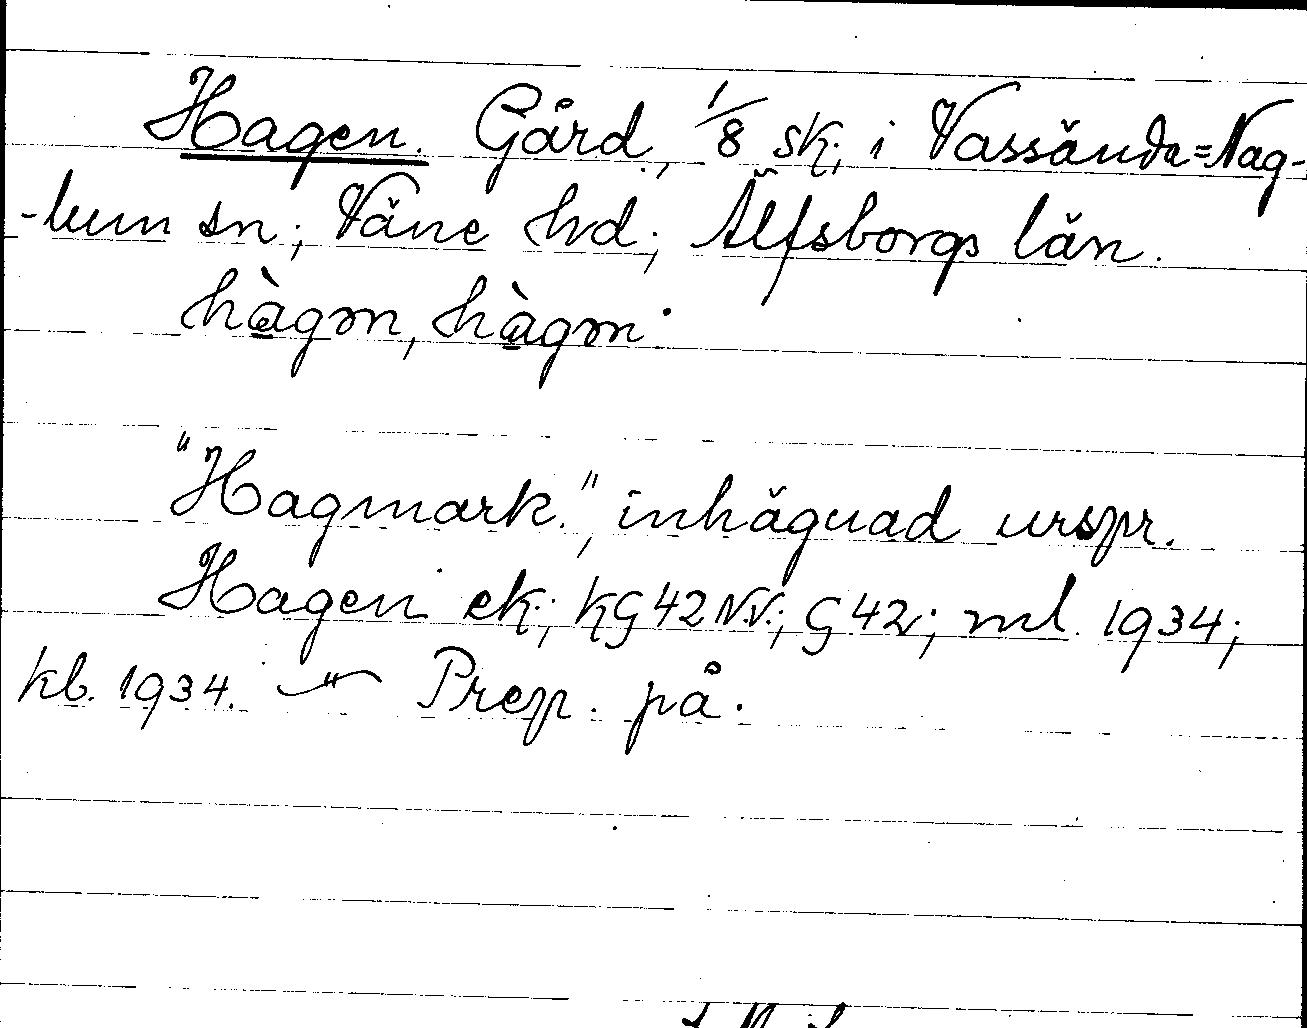 Hagen. Gård, 1/8 sk; i Vassända=Nag-
-lum sn; Väne hd; Älfsborgs län.
hàgən, hàgən.
"Hagmark.", inhägnad urspr.
Hagen ek; KG42NV.; G42; ml 1934;
kb. 1934. —"— Prep. på.